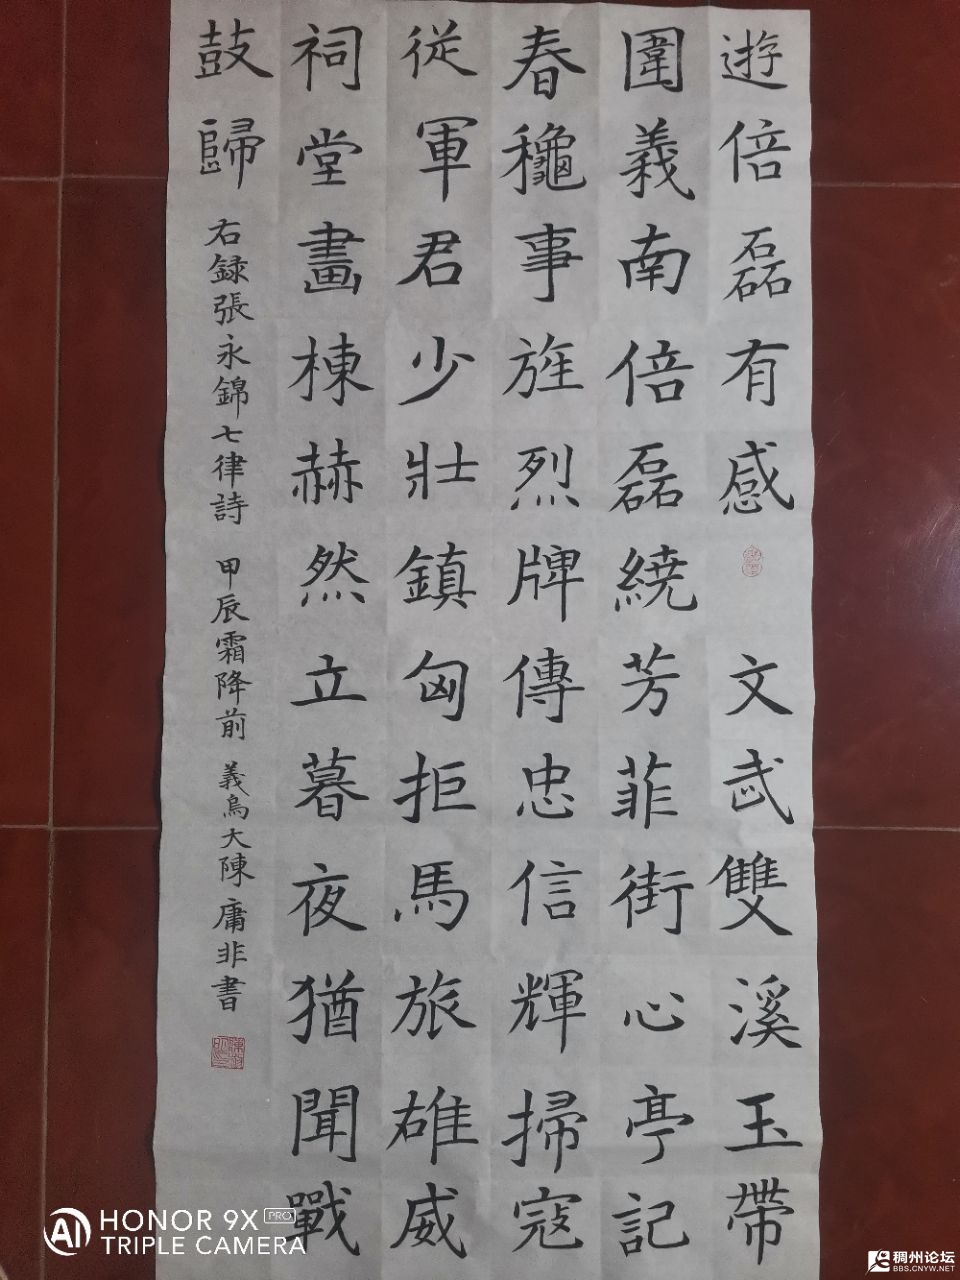 遊倍磊有感 文武雙溪玉帶
圍義南倍磊繞芳菲街心亭記
春龝事旌烈牌傳忠信輝掃寇
從軍君少壯鎮匈拒馬旅雄威
祠堂畫棟赫然立暮夜猶聞戰
鼓歸 右録張永錦七律詩 甲辰霜降前 義烏大陳庸非書
HONOR 9X PRO
TRIPLE CAMERA
稠州论坛
BBS.CNYW.NET